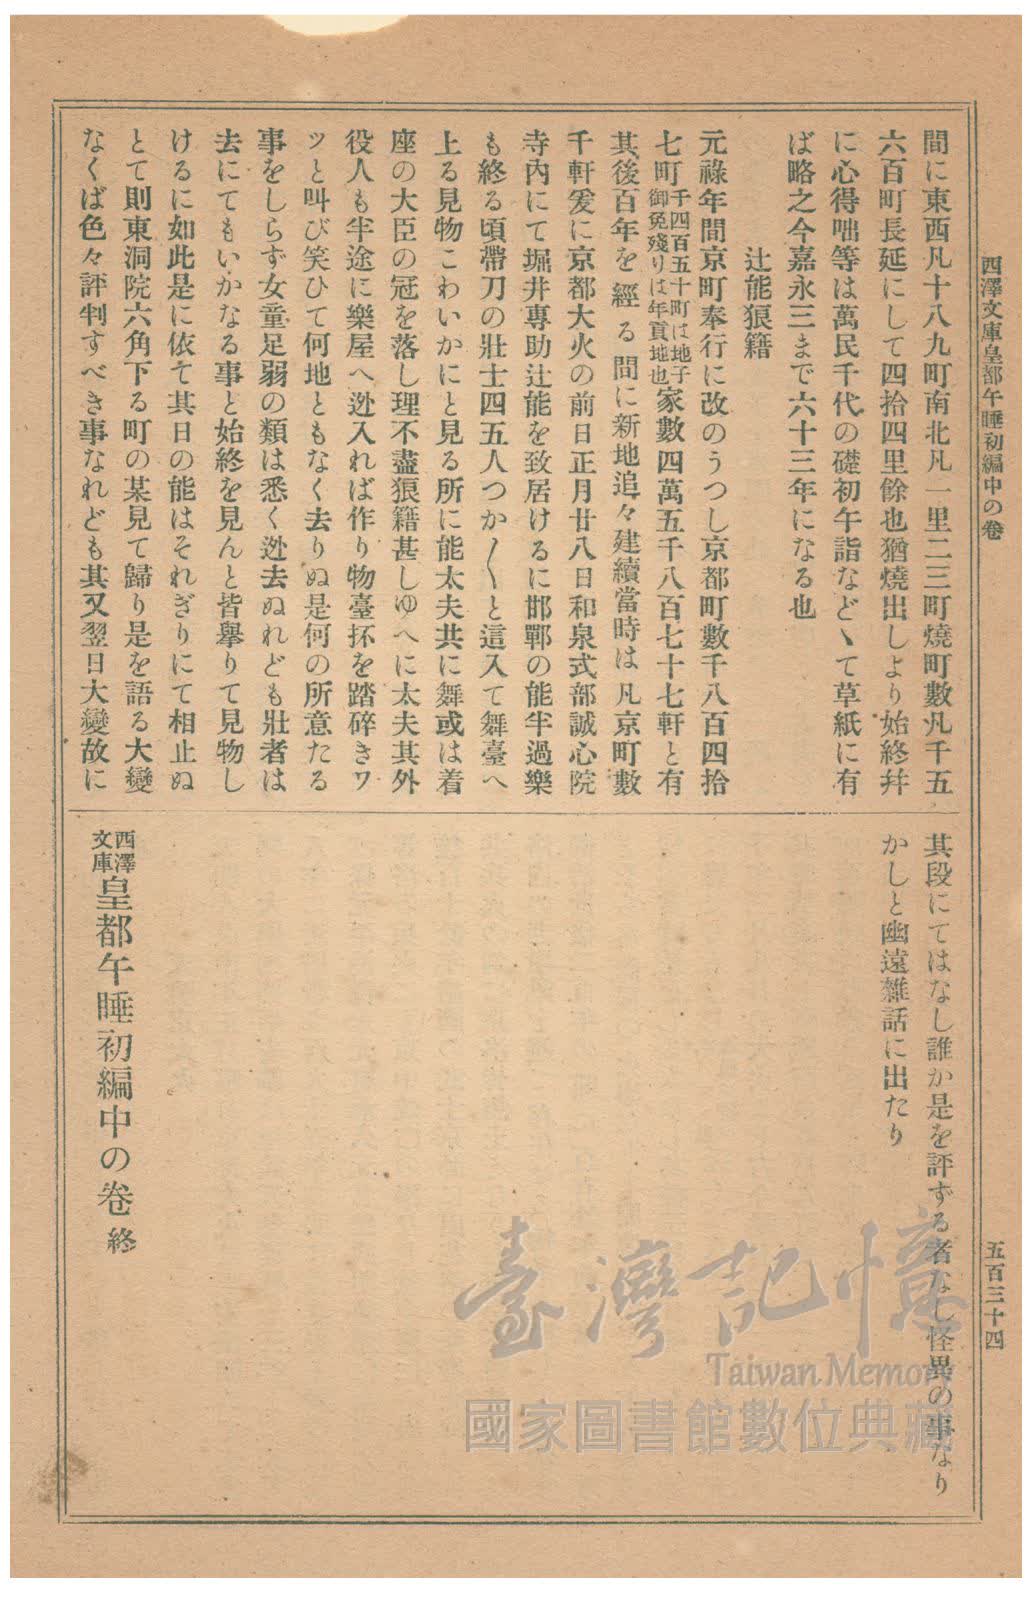 西澤文庫皇都午睡初編中の卷
間に東西凡十八九町南北凡一里二三町燒町數凡千五
六百町長延にして四拾四里餘也猶燒出しより始終幷
に心得咄等は萬民千代の礎初午詣など丶て草紙に有
ば略之今嘉永三まで六十三年になる也
辻能狼籍
元祿年間京町奉行に改のうつし京都町數千八百四拾
七町千四百五十町は地子御免殘りは年貢地也家數四萬五千八百七十七軒と有
其後百年を經る間に新地追々建續當時は凡京町數
千軒爰に京都大火の前日正月廿八日和泉式部誠心院
寺內にて堀井專助辻能を致居けるに邯鄲の能半過樂
も終る頃帶刀の壯士四五人つか〱と這入て舞臺へ
上る見物こわいかにと見る所に能太夫共に舞或は着
座の大臣の冠を落し理不盡狼籍甚しゆへに太夫其外
役人も半途に樂屋へ迯入れば作り物臺抔を踏碎きワ
ッと叫び笑ひて何地ともなく去りぬ是何の所意たる
事をしらず女童足弱の類は悉く迯去ぬれども壯者は
去にてもいかなる事と始終を見んと皆擧りて見物し
けるに如此是に依て其日の能はそれぎりにて相止ぬ
とて則東洞院六角下る町の某見て歸り是を語る大變
なくば色々評判すべき事なれども其又翌日大變故に
其段にてはなし誰か是を評ずる者なし怪異の事なり
かしと幽遠雜話に出たり
西澤文庫皇都午睡初編中の卷終
五百三十四
臺灣記憶
Taiwan Memory
國家圖書館數位典藏